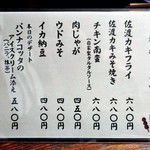 佐渡カキフライ 六八〇
佐渡カキみそ焼き 六八〇
チキン南蛮 六八〇
(自家製タルタルソース)
肉じゃが 四八〇
ウドみそ 四八〇
イカ納豆 四八〇
本日のデザート
パンナコッタの
アイスクリームのせ 五八〇